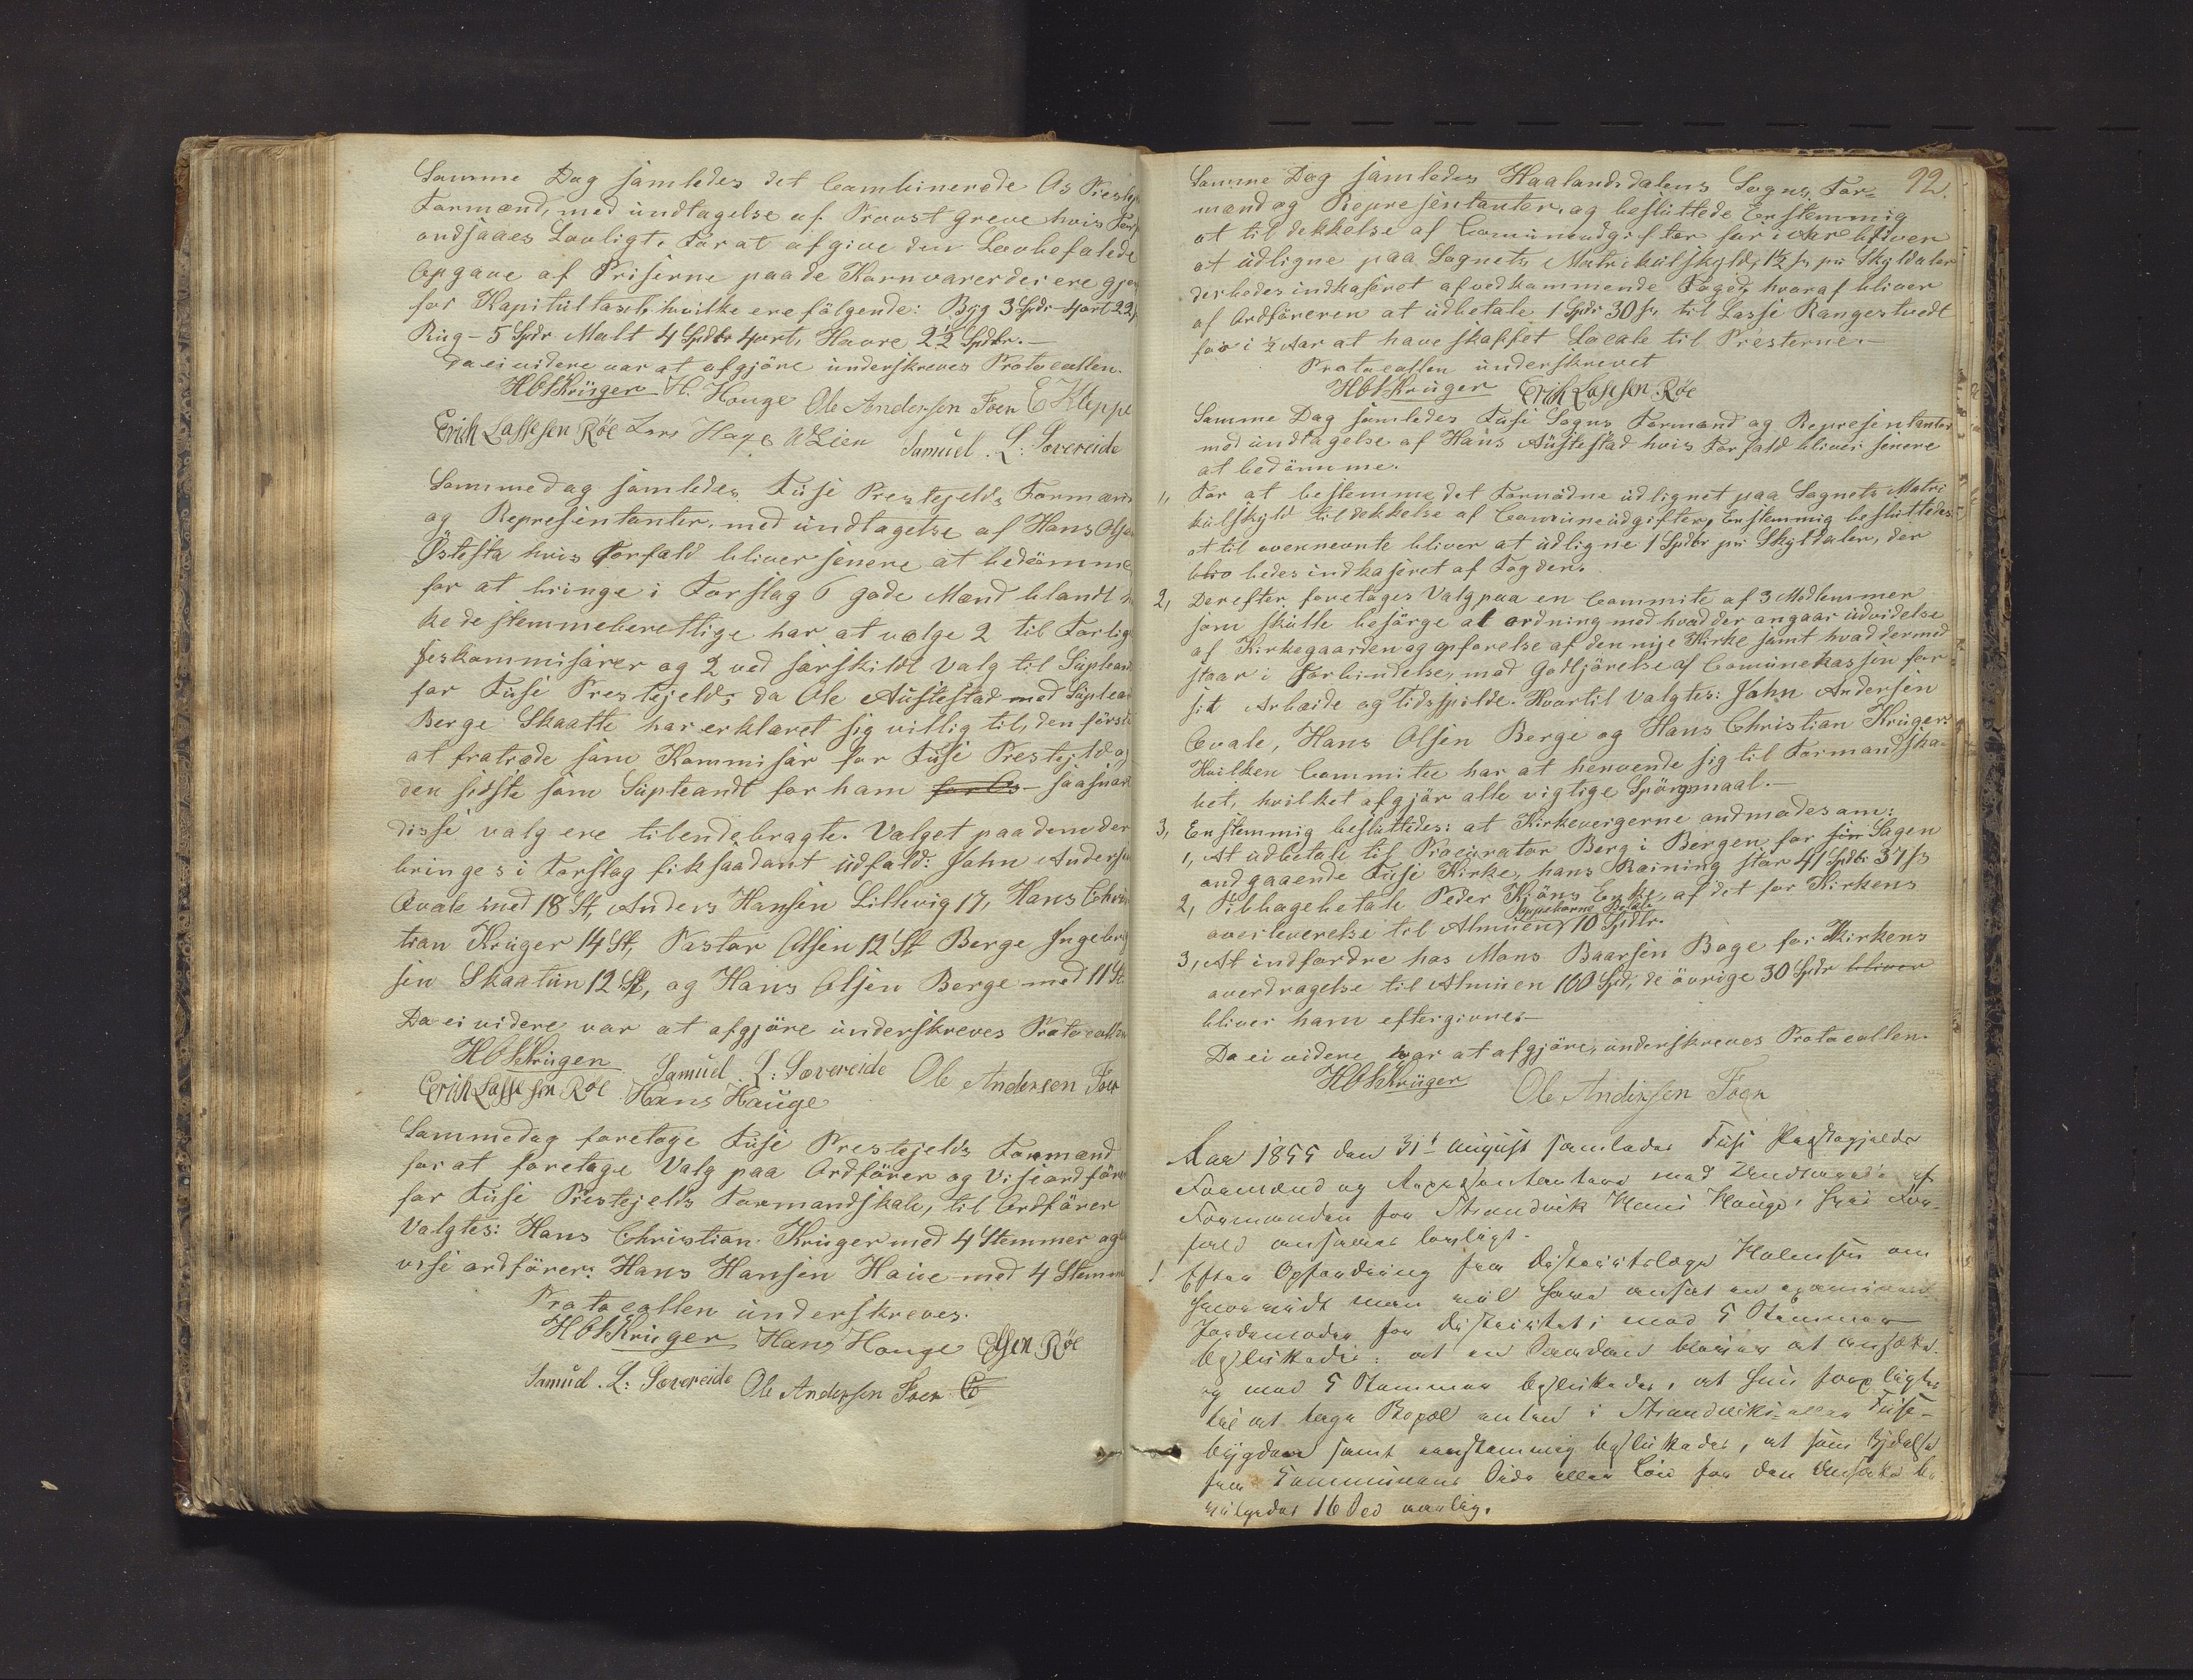 Samme Dag samledes det Combinerede Os Prestej
Formænd, med undtagelse af Provst Greve hvis Forf
andsaaes Lovligt. For at afgive den Lovbefalede
Opgave af Priserne paa de Kornvarer der ere gje
for Kapitultaxt, hvilke ere følgende: Byg 3 Spdr 4ort 22
Rug - 5 Spdr Malt 4 Spdlr 4ort, Havre 2½ Spdlr. -
Da ei videre var at afgjöre underskreves Protocollen.
HCSKrüger H. Houge Ole Andersen Foen E Kleppe
Erich Lassesen Röe Lars Hage Lien Samuel. L: Sovereide
Sammedag samledes Fuse Prestejelds Formænd
og Representanter, med undtagelse af Hans Olsen
Östesta hvis Forfald bliver senere at bedömme
for at bringe i Forslag 6 gode Mænd blandt h
ke de stemmeberettige har at vælge 2 til Forlig
seskommisærer og 2 ved særskildt Valg til Supleant
for Fuse Prestejeld; da Ole Austestad med Suplea
Berge Skaatte har erklæret sig villig til, den förste
at fratræde som Kommisær for Fuse Prestejeld og
den sidste som Supleandt for ham for Os - saasnart
disse valg ere tilendebragte. Valget paa dem der
bringes i Forslag fik saadant udfald: John Anders
Qvale med 18 St, Anders Hansen Littlevig 17, Hans Chris
tian Krüger 14 St, Pastor Olsen 12 St Berge Ingebrig
sen Skaatun 12 St, og Hans Olsen Berge med 11 St.
Da ei videre var at afgjöre underskreves Protocollen
HCSKrüger Samuel. L: Sovereide Ole Andersen Foen
Erich Lassesen Röe Hans Hauge
Sammedag foretoge Fuse Prestejelds Formænd
for at foretage Valg paa Ordförer og Viseordför
for Fuse Prestejelds Formandskab, til Ordförer
Valgtes: Hans Christian Krüger med 4 Stemmer og
vise ordförer: Hans Hansen Haue med 4 Stemm
Protocollen underskreves.
HCSKrüger Hans Houge Elsen Röe
Samuel. L: Sovereide Ole Andersen Foen
92.
Samme Dag samledes Haalandsdalens Sogns For=
mænd og Representanter, og besluttede Enstemmig
at til dekkelse af Comuneudgifter for i aar bliver
at udligne paa Sognets Matrikulskyld, 12 s. pr Skyldaler
der bedes indkaseret af vedkommende Foged, hvoraf bliver
af Ordföreren at udbetale 1 Spdr 30 s. til Lasse Rangestvedt
for i ½ Aar at have skaffet Locale til Presterne. -
Protocollen underskrevet
HCSKrüger Erich Lassesen. Röe
Samme Dag samledes Fuse Sogns Formænd og Representanter
med undtagelse af Hans Austestad hvis Forfald bliver senere
at bedömme.
1, For at bestemme det Fornödne udlignet paa Sognets Matri
kulskyld til dekkelse af Comuneudgifter, Enstemmig besluttedes
at til ovennevnte bliver at udligne 1 Spdlr pr Skyldaler, der
bliv bedes indkaseret af Fogden.
2, Derefter foretages Valg paa en Commite af 3 Medlemmer
som skulle besörge al ordning med hvad der angaar udvidelse
af Kirkegaarden og opforelse af den nye Kirke samt hvad dermed
staar i Forbindelse, mod Godtjörelse af Comunekassen for
sit Arbeide og Tidsspilde. Hvortil Valgtes: John Andersen
Qvale, Hans Olsen Berge og Hans Christian Krüger.
Hvilken Commitee har at henvende sig til Formandska-
bet, hvilket afgjör alle vigtige Spörgsmaal. -
3, Enstemmig besluttedes: at Kirkevergerne andmodes om:
1, At udbetale til Procurator Berg i Bergen for sin Sagen
andgaaende Fuse Kirke, hans Raining stor 41 Spdr 37 s
2, Tilbagebetale Peder Kjöns Enke, af det for Kirkens
overleverelse til Almuen 10 Spdlr.
3, At indfordre hos Mons Baarsen Boge for Kirkens
overdragelse til Almuen 100 Spd, de övrige 30 Spdr bliver
bliver ham eftergivne. -
Da ei videre var at afgjöre, underskreves Protocollen.
HCSKrüger Ole Andersen Foen
Aar 1855 den 31t August samledes Fuse Præstegjelds
Formænd og Repræsentantere med Undtagelse af
Formanden for Strandvik Hans Houge, hvis For-
fald ansaaes lovligt.
1 Efter Opfordring fra Districtslæge Holmsen om
hvorvidt man vil have ansat en examineret
Jordemoder for Districtet; med 5 Stemmer
besluttedes: at en saadan bliver at ansætte.
og med 5 Stemmer besluttedes, at hun forpligtes
til at tage Bopæl enten i Strandvik eller Fuse-
bygden samt eenstemmig besluttedes, at som Hjelp
fra Communens Side eller Lön for den Ansatte be
vilgedes 16 Spd aarlig.